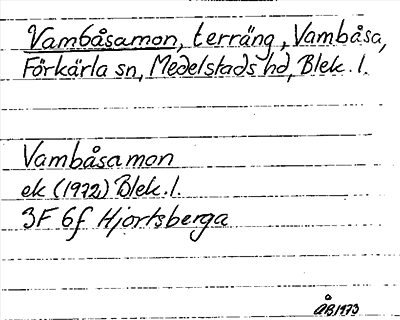 Vambåsamon, terräng, Vambåsa,
Förkärla sn, Medelstads hd, Blek. l.
Vambåsamon
ek (1972) Blek. l.
3F 6f Hjortsberga
ÅB1973